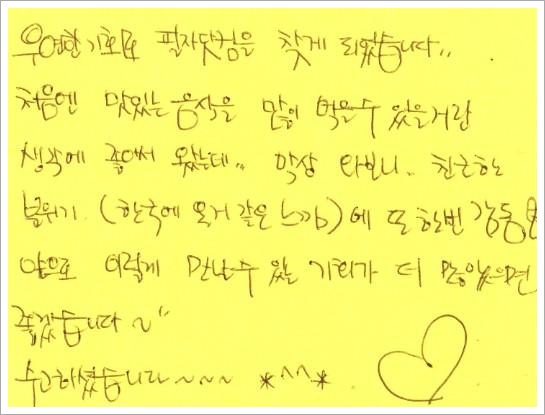 우연한 기회로 필자닷컴을 찾게 되었습니다..
처음엔 맛있는 음식을 많이 먹을수 있을거란
생각에 좋아서 왔는데.. 막상 와보니.. 친근하는
분위기. (한국에 온거 같은 느낌)에 또 한번 감동
앞으로 이렇게 만날수 있는 기회가 더 많이 있으면
좋겠습니다 ~"
수고하셨습니다 ~ ~ ~ *^^*